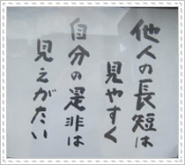 他人の長短は
見やすく
自分の是非は
見えがたい